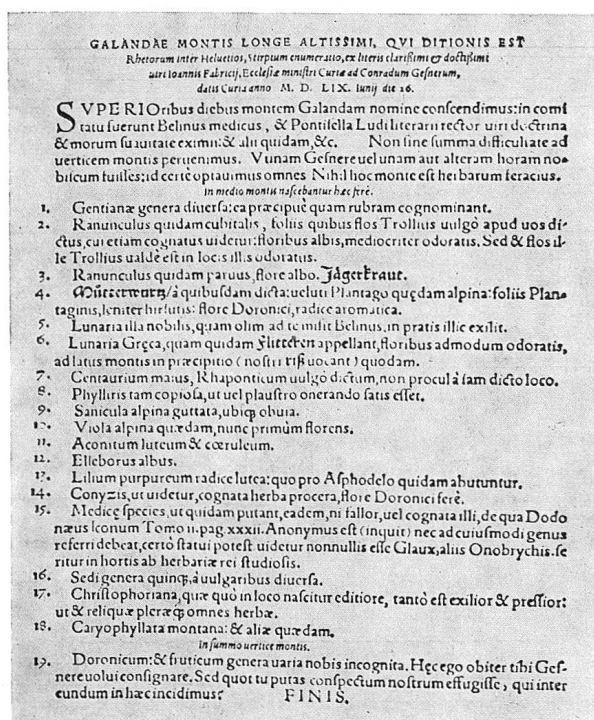 GALANDAE MONTIS LONGE ALTISSIMI, QVI DITIONIS EST
Rhetorum inter Heluetios, Stirpium enumeratio, ex literis clarißimi & doctißimi
uiri Ioannis Fabricij, Ecclesiæ ministri Curiæ ad Conradum Gesnerum,
datis Curia anno M. D. LIX. Iunij die 26.
SVPERIOribus diebus montem Galandam nomine conscendimus: in comi
tatu fuerunt Belinus medicus, & Pontisella Ludi literarii rector uiri doctrina
& morum suauitate eximii: & alii quidam, &c. Non sine summa difficultate ad
uerticem montis peruenimus. Vtinam Gesnere uel unam aut alteram horam no-
biscum fuisses: id certè optauimus omnes Nihil hoc monte est herbarum feracius.
In medio montis nascebantur hæc ferè.
1. Gentianæ genera diuersa: ea præcipuè quam rubram cognominant.
2. Ranunculus quidam cubitalis, foliis quibus flos Trollius uulgò apud uos di-
ctus, cui etiam cognatus uidetur: floribus albis, mediocriter odoratis. Sed & flos il-
le Trollius ualdè est in locis illis odoratus.
3. Ranunculus quidam paruus, flore albo. Jägerkraut.
4. Mütterwurtz/ à quibusdam dicta: ueluti Plantago quędam alpina: foliis Plan-
taginis, leniter hirsutis: flore Doronici, radice aromatica.
5. Lunaria illa nobilis, quam olim ad te misit Belinus, in pratis illic exilit.
6. Lunaria Gręca, quam quidam appellant, floribus admodum odoratis,
ad latus montis in præcipitio (nostri riß uocant) quodam.
7. Centaurium maius, Rhaponticum uulgò dictum, non procul à iam dicto loco.
8. Phyllitis tam copiosa, ut uel plaustro onerando satis esset.
9. Sanicula alpina guttata, ubiq; obuia.
10. Viola alpina quædam, nunc primùm florens.
11. Aconitum luteum & cœruleum.
12. Elleborus albus.
13. Lilium purpureum radice lutea: quo pro Asphodelo quidam abutuntur.
14. Conyzis, ut uidetur, cognata herba procera, flore Doronici ferè.
15. Medicę species, ut quidam putant, eadem, ni fallor, uel cognata illi, de qua Dodo
næus Iconum Tomo II. pag. xxxii. Anonymus est (inquit) nec ad cuiusmodi genus
referri debeat, certò statui potest uidetur nonnullis esse Glaux, aliis Onobrychis. se
ritur in hortis ab herbariæ rei studiosis.
16. Sedi genera quinq;, à uulgaribus diuersa.
17. Christophoriana, quæ quò in loco nascitur editiore, tantò est exilior & pressior:
ut & reliquæ pleræq; omnes herbæ.
18. Caryophyllata montana: & aliæ quædam.
In summo uertice montis.
19. Doronicum: & fruticum genera uaria nobis incognita. Hęc ego obiter tibi Ges-
nere uolui consignare. Sed quot tu putas conspectum nostrum effugisse, qui inter
eundum in hæc incidimus? FINIS.